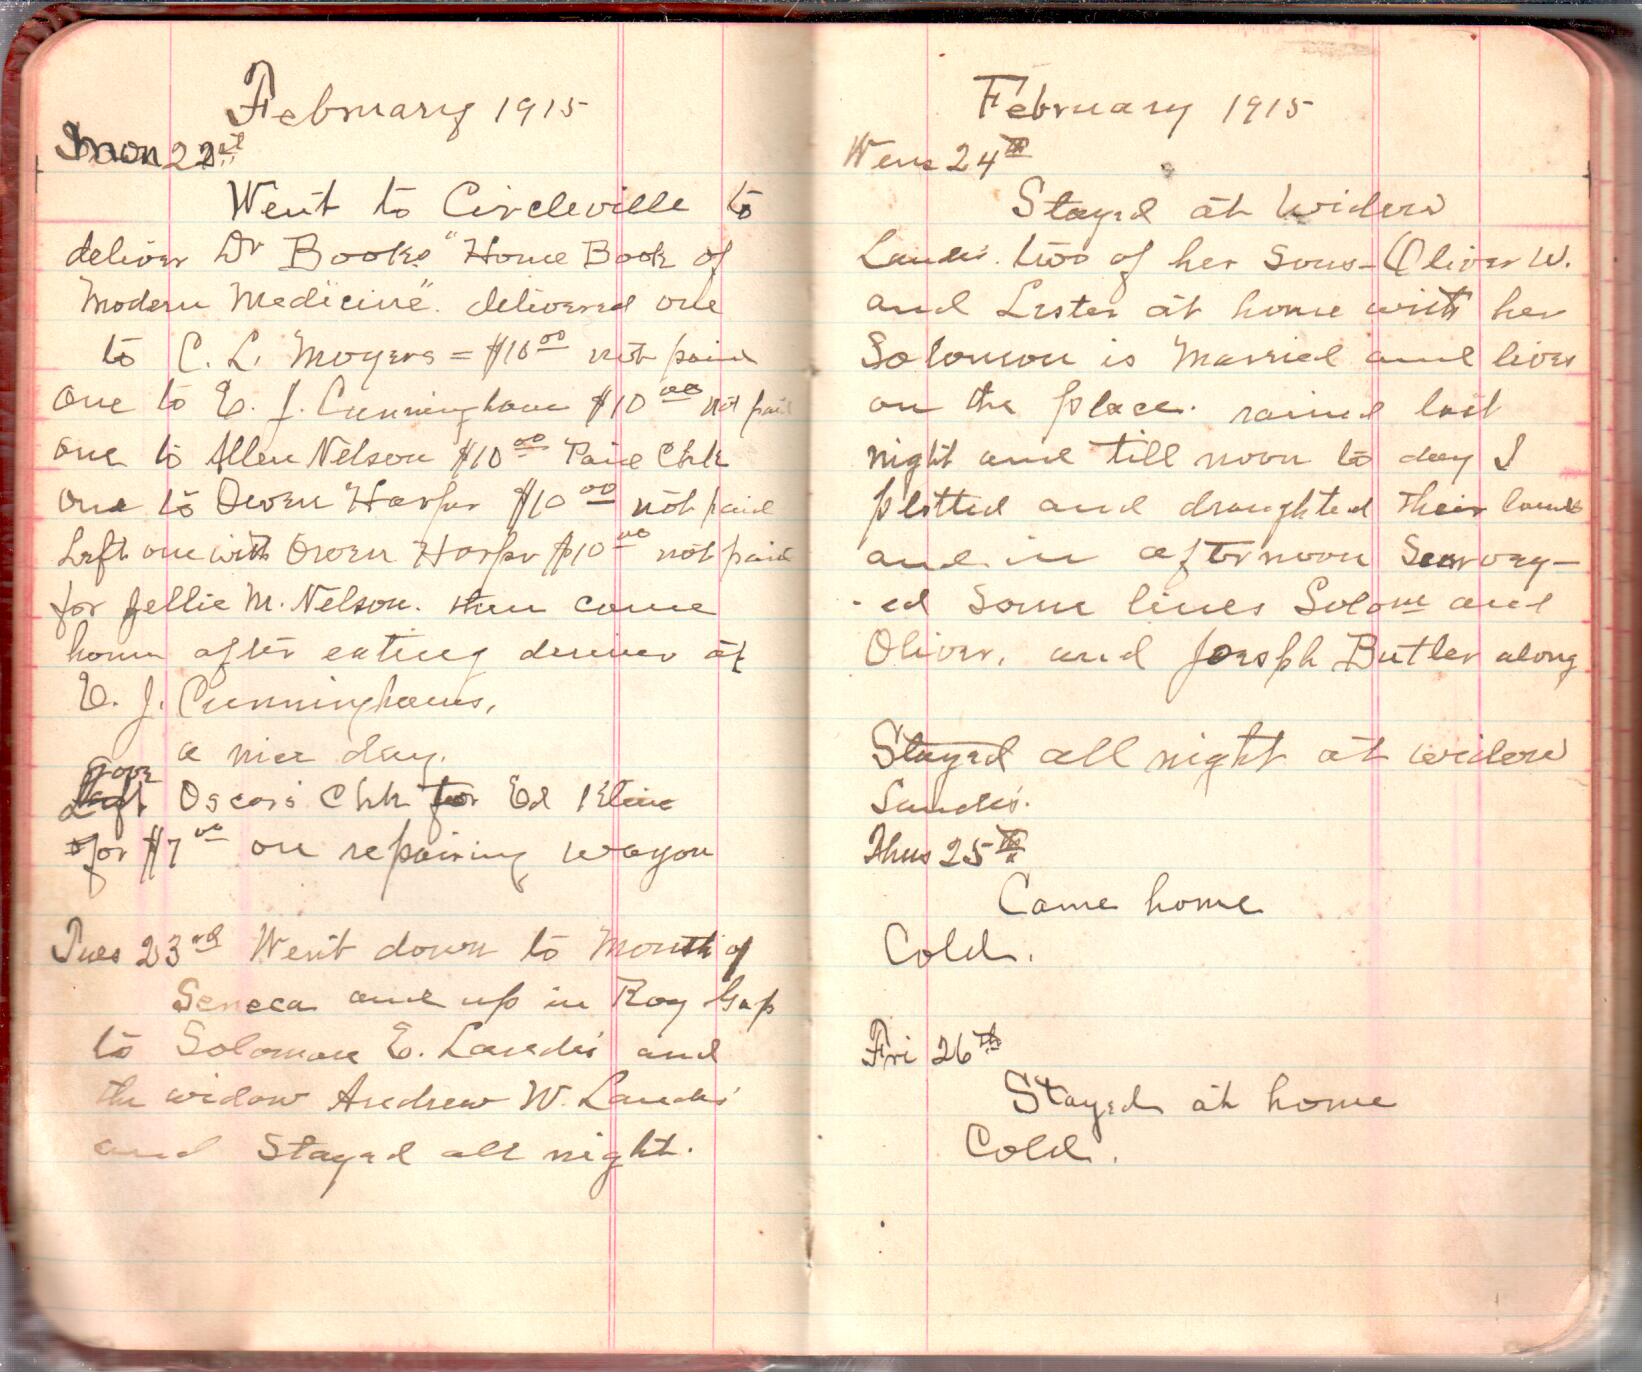 February 1915
Mon 22
Went to Circleville to
deliver Dr Books "Home Book of
Modern Medicine". delivered one
to C. L. Moyers = $10 00 not paid
one to E. J. Cunningham $10 00 not paid
one to Allen Nelson $10 00 Paid Chk
one to Owen Harper $10 00 not paid
Left one with Owen Harper $10 00 not paid
for M. Nelson. then came
home after eating dinner at
E. J. Cunninghams,
a nice day.
gave
Oscars Chk for Ed Kline
for $7 00 on repairing wagon
Tues 23rd Went down to Mouth of
Seneca and up in Roy Gap
to Solomon E. Landis and
the widow Andrew W. Landis'
and Stayed all night.
February 1915
Wens 24th
Stayed at widow
Landis'. two of her Sons - Oliver W.
and Lester at home with her
Solomon is Married and lives
on the place. rained last
night and till noon to day I
plotted and draughted their lands
and in afternoon Survey-
-ed Some lines Solomn and
Oliver, and Joesph Butler along
Stayed all night at widow
Landis'.
Thus 25th
Came home
Cold.
Fri 26th
Stayed at home
Cold.